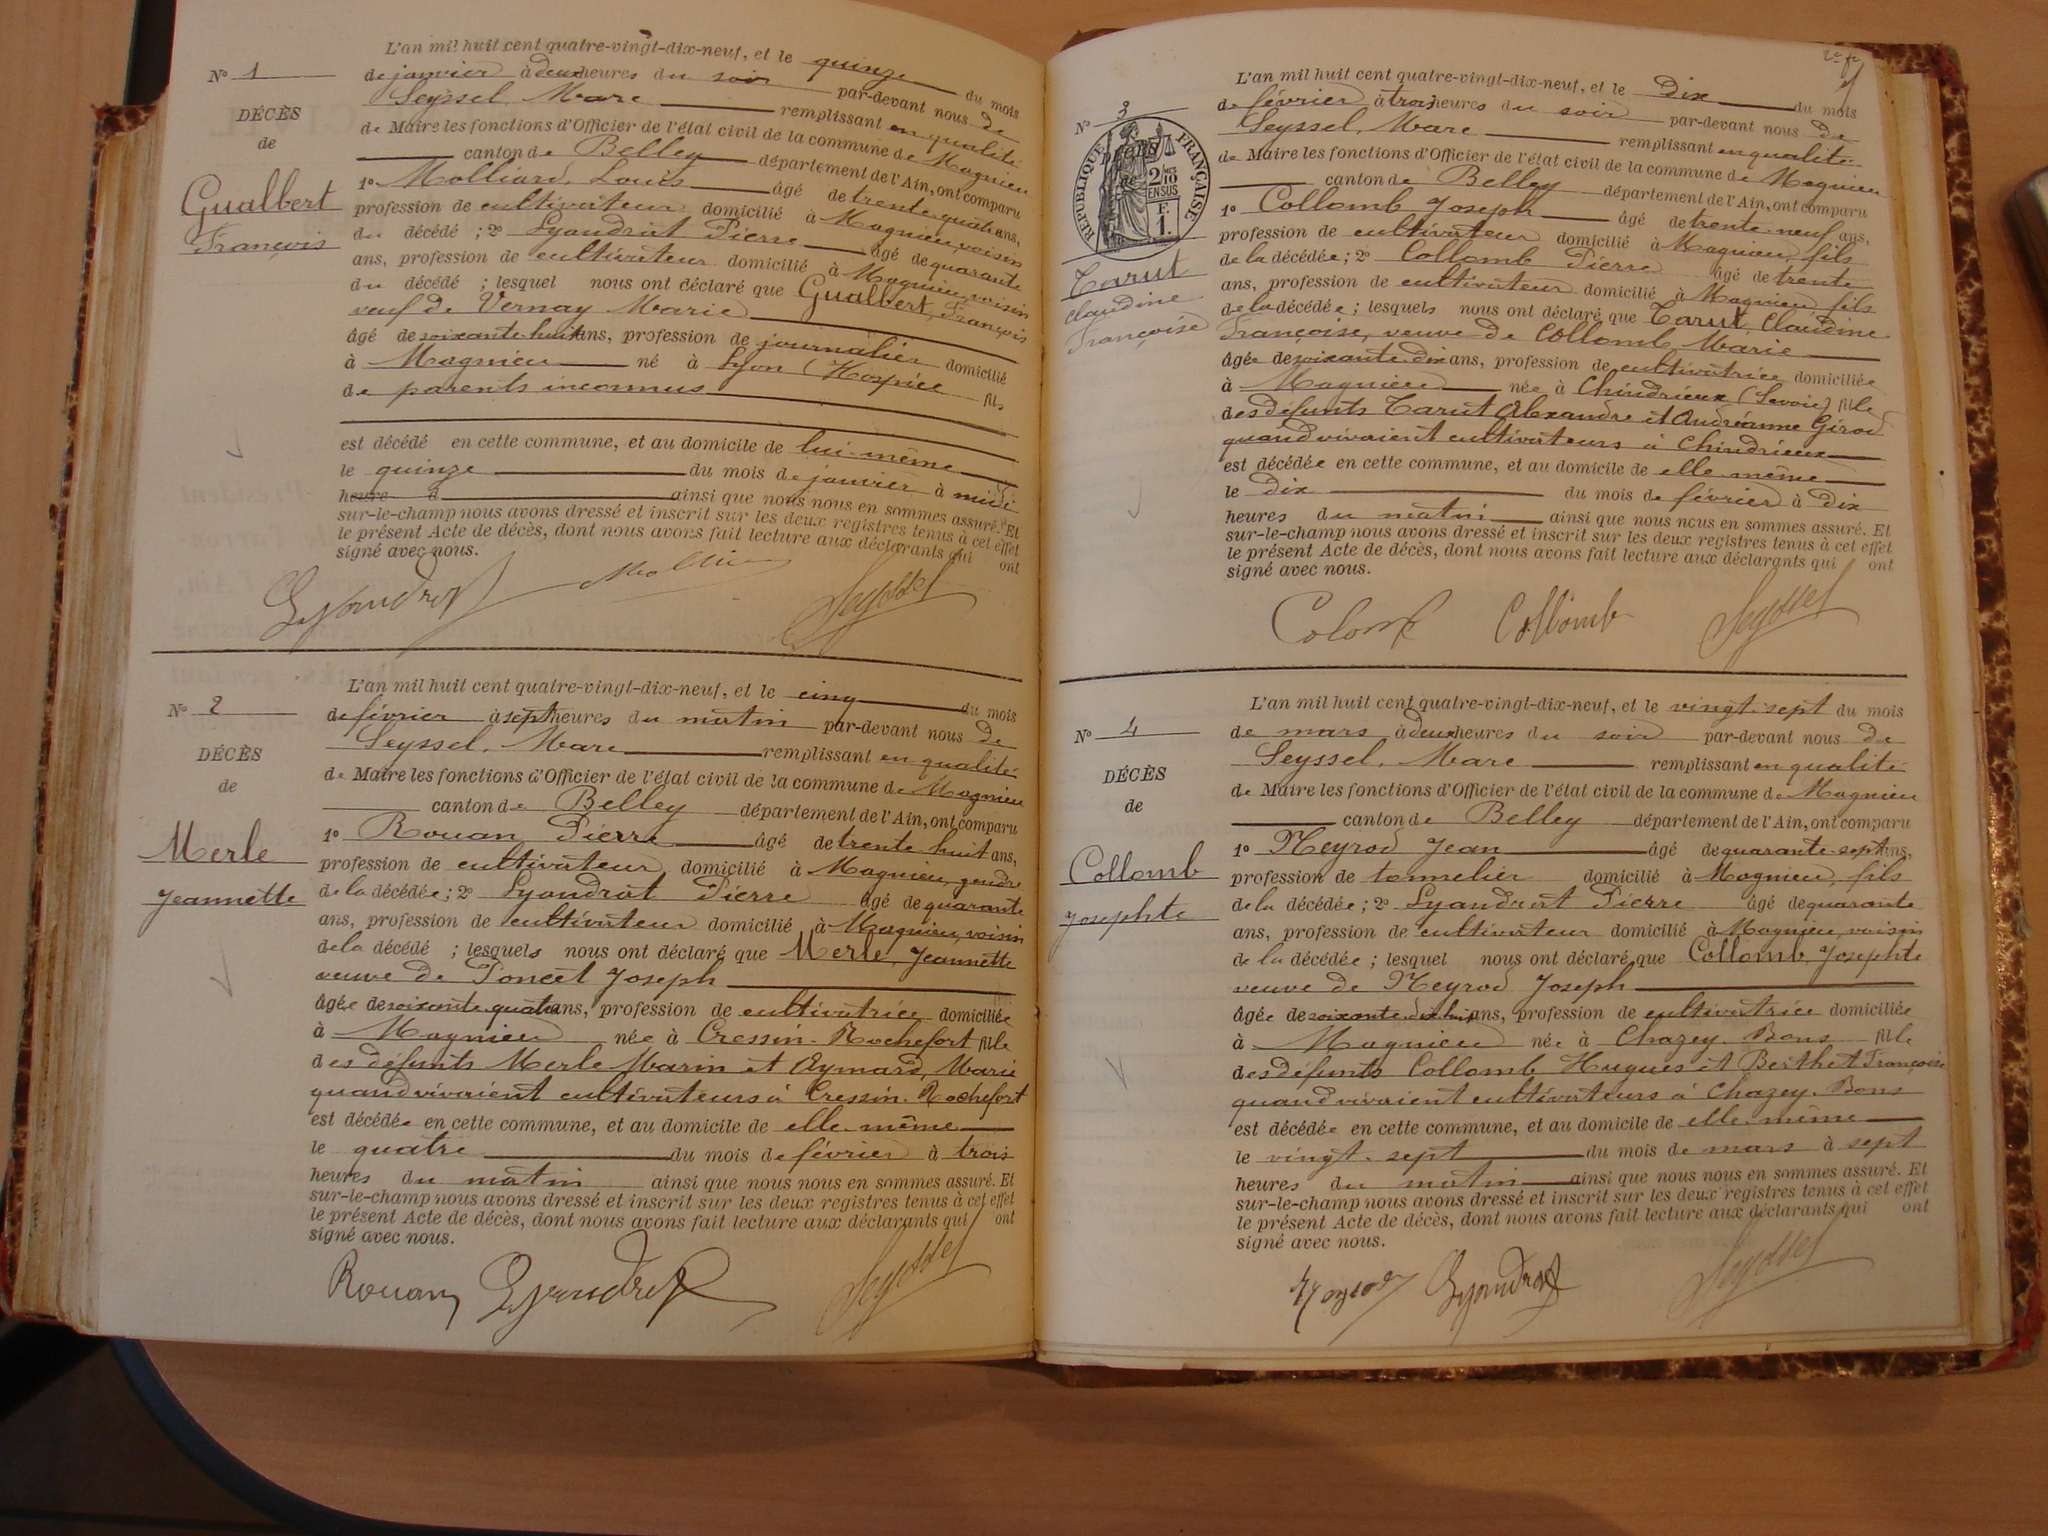 N° 1
DÉCÈS
de
Gualbert
François
L'an mil huit cent quatre-vingt-dix-neuf, et le quinze du mois
de janvier à deux heures du soir par-devant nous de
Seyssel, Marc remplissant en qualité
de Maire les fonctions d'Officier de l'état civil de la commune de Magnieu
canton de Belley département de l'Ain, ont comparu
1° Molliard, Louis âgé de trente quatre ans,
profession de cultivateur domicilié à Magnieu, voisin
du décédé ; 2° Lyandrat Pierre âgé de quarante
ans, profession de cultivateur domicilié à Magnieu, voisin
du décédé ; lesquel nous ont déclaré que Gualbert, François
veuf de Vernay Marie
âgé de soixante huit ans, profession de journalier domicilié
à Magnieu né à Lyon (Hospice fils
de parents inconnus
est décédé en cette commune, et au domicile de lui-même
le quinze du mois de janvier à midi
heure à ainsi que nous nous en sommes assuré. Et
sur-le-champ nous avons dressé et inscrit sur les deux registres tenus à cet effet
le présent Acte de décès, dont nous avons fait lecture aux déclarants qui ont
signé avec nous.
Lyandrat Seyssel
N° 2
DÉCÈS
de
Merle
Jeannette
L'an mil huit cent quatre-vingt-dix-neuf, et le cinq du mois
de février à sept heures du matin par-devant nous de
Seyssel, Marc remplissant en qualité
de Maire les fonctions d'Officier de l'état civil de la commune de Magnieu
canton de Belley département de l'Ain, ont comparu
1° Rouan Pierre âgé de trente huit ans,
profession de cultivateur domicilié à Magnieu, gendre
de la décédée ; 2° Lyandrat Pierre âgé de quarante
ans, profession de cultivateur domicilié à Magnieu, voisin
de la décédé ; lesquels nous ont déclaré que Merle, Jeannette
veuve de Poncet Joseph
âgée de soixante quatre ans, profession de cultivatrice domiciliée
à Magnieu née à Cressin-Rochefort fille
des défunts Merle Marin et Aymard, Marie
quand vivaient cultivateurs à Cressin-Rochefort
est décédée en cette commune, et au domicile de elle-même
le quatre du mois de février à trois
heures du matin ainsi que nous nous en sommes assuré. Et
sur-le-champ nous avons dressé et inscrit sur les deux registres tenus à cet effet
le présent Acte de décès, dont nous avons fait lecture aux déclarants qui ont
signé avec nous.
Rouan Lyandrat Seyssel
N° 3
RÉPUBLIQUE FRANÇAISE
2/10
EN SUS
F.
1.
Tarut
Claudine
Françoise
L'an mil huit cent quatre-vingt-dix-neuf, et le dix du mois
de février à trois heures du soir par-devant nous de
Seyssel, Marc remplissant en qualité
de Maire les fonctions d'Officier de l'état civil de la commune de Magnieu
canton de Belley département de l'Ain, ont comparu
1° Collomb Joseph âgé de trente neuf ans,
profession de cultivateur domicilié à Magnieu, fils
de la décédée ; 2° Collomb Pierre âgé de trente
ans, profession de cultivateur domicilié à Magnieu fils
de la décédée ; lesquels nous ont déclaré que Tarut, Claudine
Françoise, veuve de Collomb Marie
âgée de soixante dix ans, profession de cultivatrice domiciliée
à Magnieu née à Chindrieux (Savoie) fille
des défunts Tarut Alexandre et Andréanne Girod
quand vivaient cultivateurs à Chindrieux
est décédée en cette commune, et au domicile de elle même
le dix du mois de février à dix
heures du matin ainsi que nous nous en sommes assuré. Et
sur-le-champ nous avons dressé et inscrit sur les deux registres tenus à cet effet
le présent Acte de décès, dont nous avons fait lecture aux déclarants qui ont
signé avec nous.
Colomb Collomb Seyssel
N° 4
DÉCÈS
de
Collomb
Josephte
L'an mil huit cent quatre-vingt-dix-neuf, et le vingt-sept du mois
de mars à deux heures du soir par-devant nous de
Seyssel, Marc remplissant en qualité
de Maire les fonctions d'Officier de l'état civil de la commune de Magnieu
canton de Belley département de l'Ain, ont comparu
1° Neyrod Jean âgé de quarante-sept ans,
profession de tonnelier domicilié à Magnieu, fils
de la décédée ; 2° Lyandrat Pierre âgé de quarante
ans, profession de cultivateur domicilié à Magnieu, voisin
de la décédée ; lesquel nous ont déclaré que Collomb, Josephte
veuve de Neyrod Joseph
âgée de soixante dix huit ans, profession de cultivatrice domiciliée
à Magnieu née à Chazey-Bons fille
des défunts Collomb Hugues et Berthet Françoise
quand vivaient cultivateurs à Chazey-Bons
est décédée en cette commune, et au domicile de elle-même
le vingt-sept du mois de mars à sept
heures du matin ainsi que nous nous en sommes assuré. Et
sur-le-champ nous avons dressé et inscrit sur les deux registres tenus à cet effet
le présent Acte de décès, dont nous avons fait lecture aux déclarants qui ont
signé avec nous.
Lyandrat Seyssel